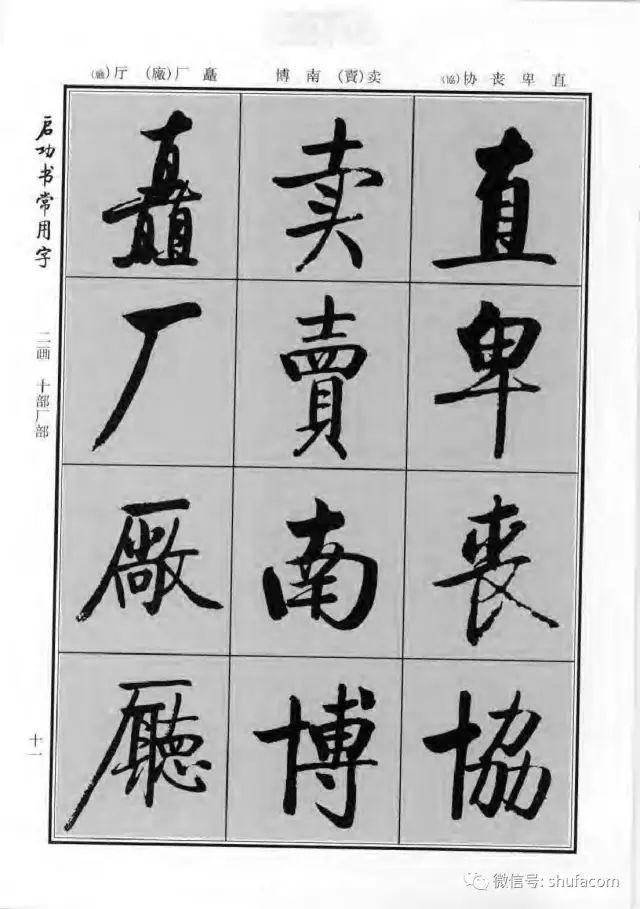 直 卑 丧 协(協)
卖(賣) 南 博
矗 厂(廠) 厅(廳)
直
卑
丧
協
卖
賣
南
博
矗
厂
廠
廳
启功书常用字
二画 十部厂部
十一
微信号: shufacom